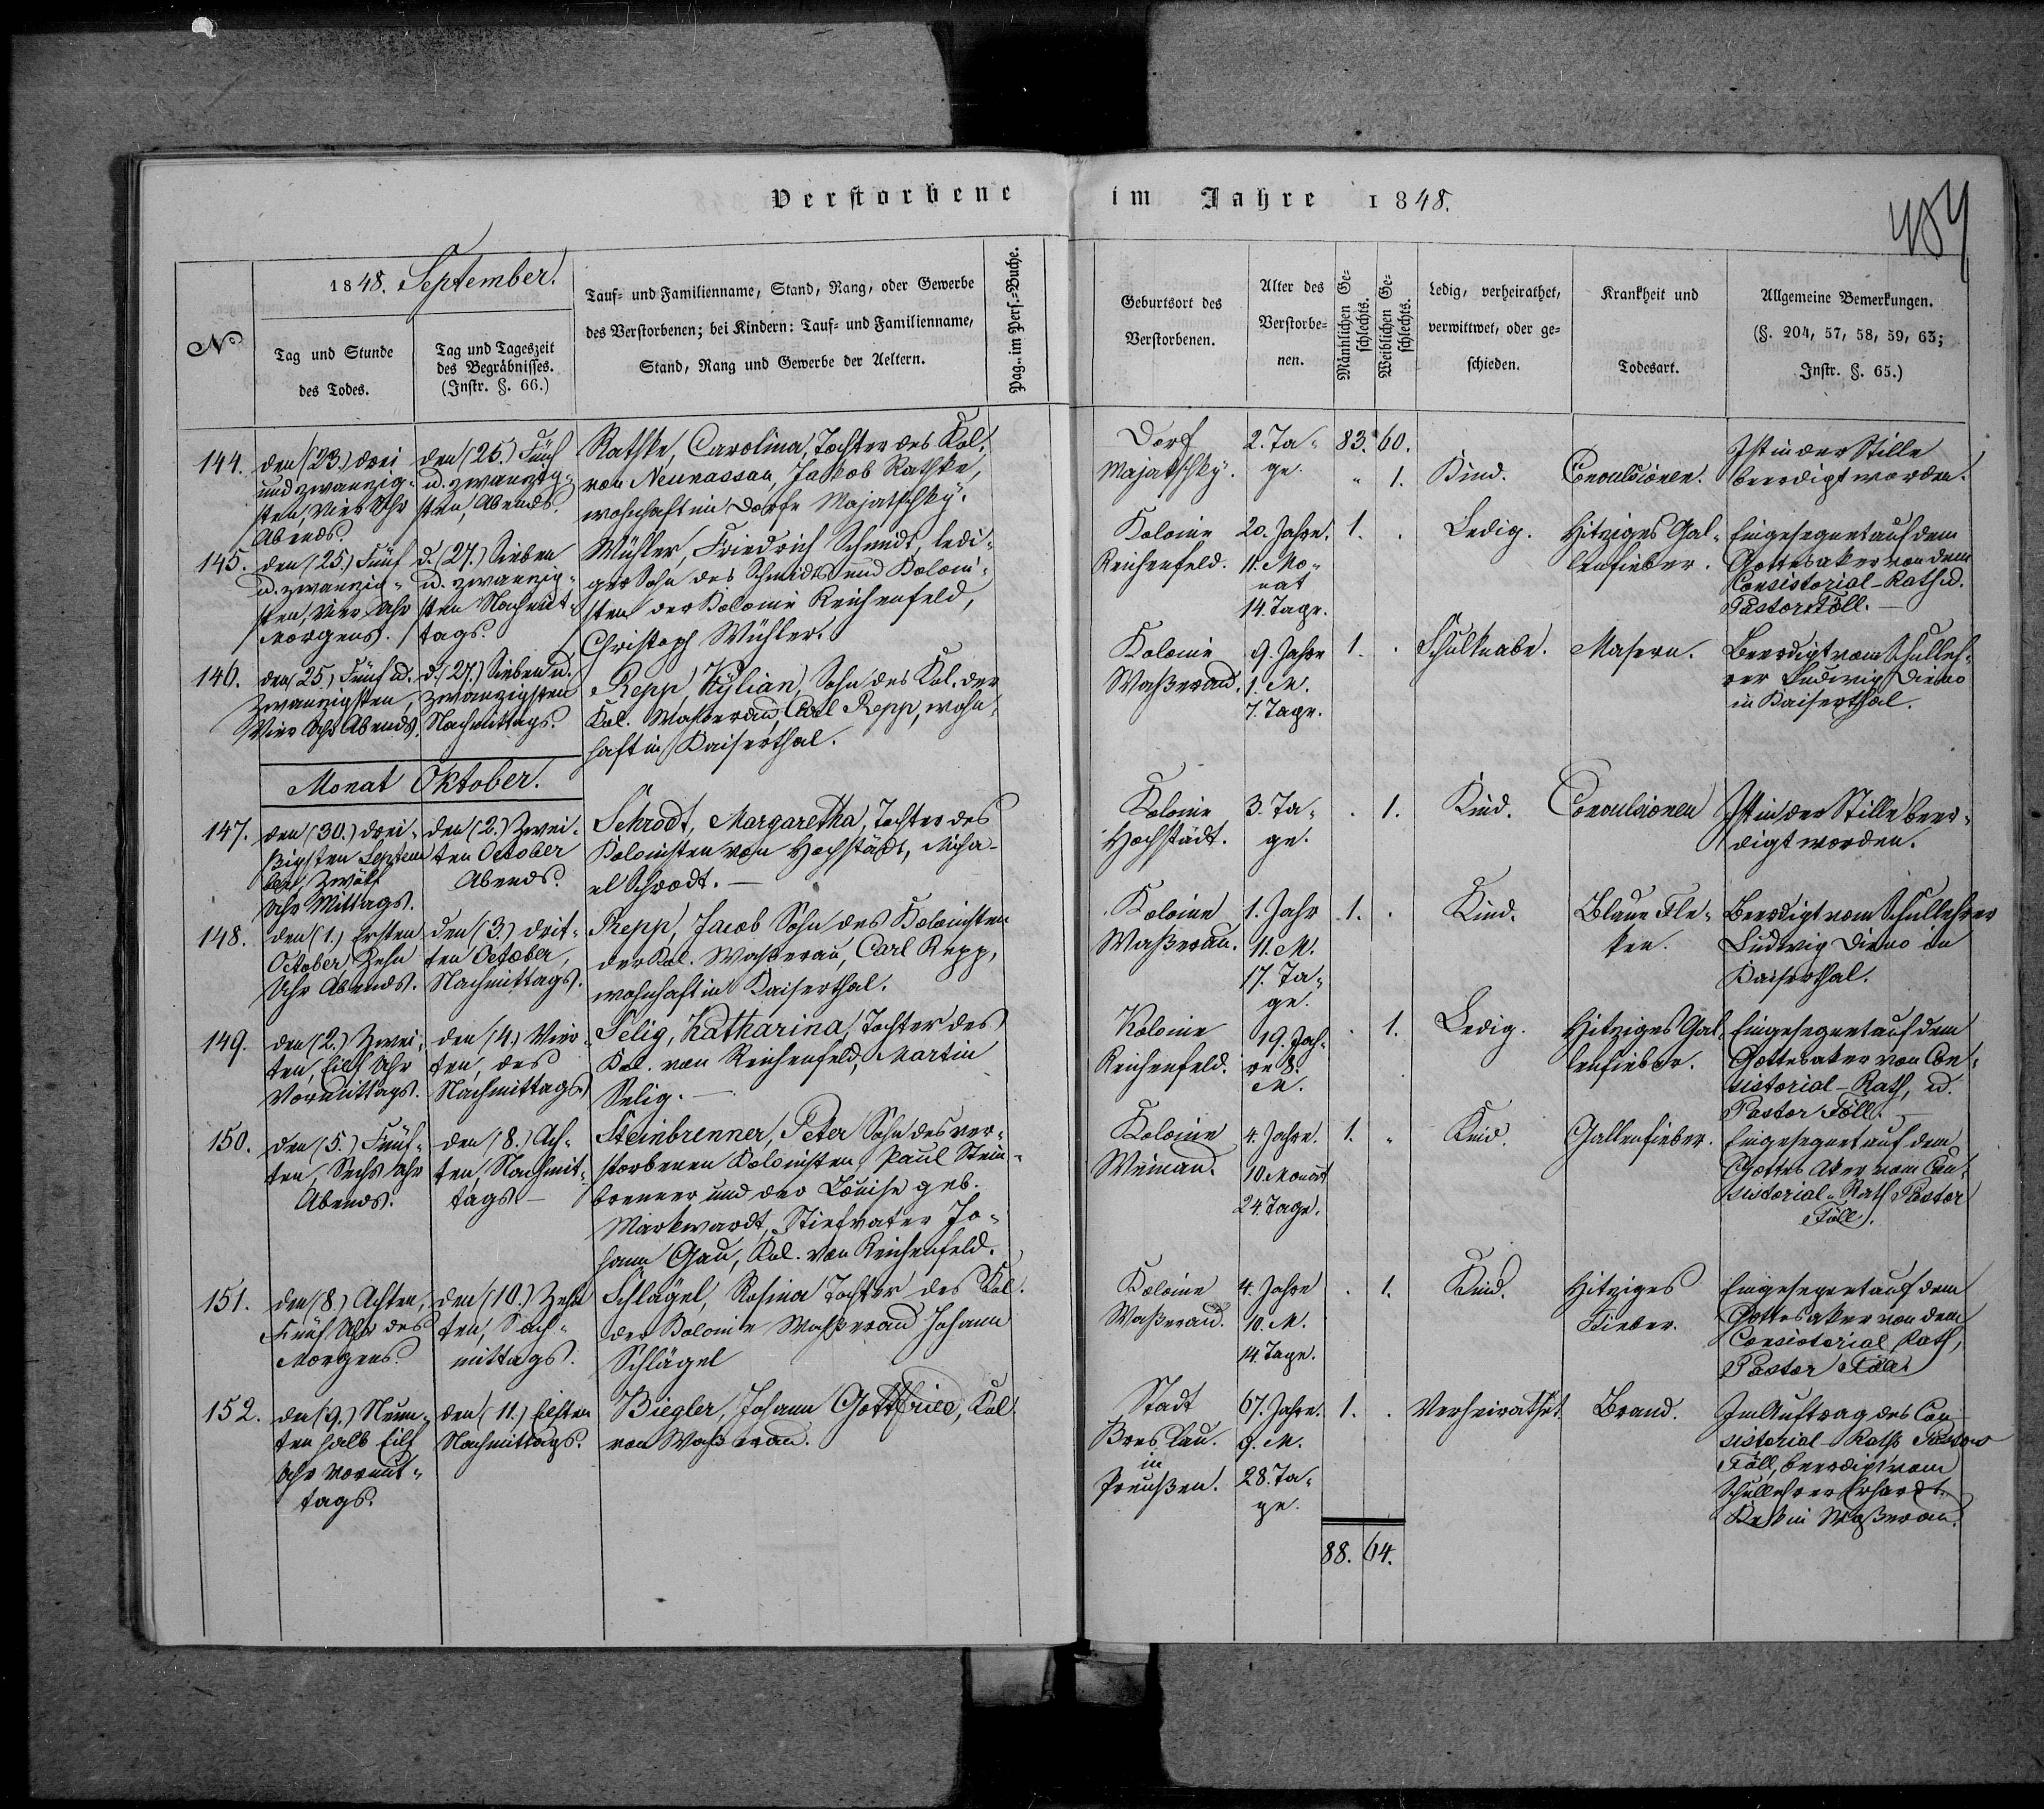 Verstorbene im Jahre 1848.
484
No
1848. September.
Tag und Stunde
des Todes.
Tag und Tageszeit
des Begräbnisses.
(Instr. §. 66.)
Tauf- und Familienname, Stand, Rang, oder Gewerbe
des Verstorbenen; bei Kindern: Tauf- und Familienname,
Stand, Rang und Gewerbe der Aeltern.
Pag. im Pers.-Buche.
Geburtsort des
Verstorbenen.
Alter des
Verstorbe-
nen.
Männlichen Ge-
schlechts.
Weiblichen Ge-
schlechts.
Ledig, verheirathet,
verwittwet, oder ge-
schieden.
Krankheit und
Todesart.
Allgemeine Bemerkungen.
(§. 204, 57, 58, 59, 63;
Instr. §. 65.)
144.
den (23.) drei
und zwanzig-
sten, Vier Uhr
Abends.
den (25.) Fünf
u. zwanzig-
sten, Abends.
Rathke, Carolina, Tochter des Kol.
von Neunassau, Jakob Rathke,
wohnhaft im Dorfe Majatschky.
Dorf
Majatschky.
2. Ta-
ge.
83. 60.
" 1.
Kind.
Convulsionen.
Ist in der Stille
beerdigt worden.
145.
den (25.) Fünf
u. zwanzig-
sten, Vier Uhr
Morgens.
d. (27.) Sieben
u. zwanzig-
sten Nachmit-
tags.
Wühler, Friedrich Schmidt, ledi-
ger Sohn des Schmidts und Koloni-
sten der Kolonie Reichenfeld,
Christoph Wühler.
Kolonie
Reichenfeld.
20. Jahre.
11. Mo-
nat
14. Tage.
1. .
Ledig.
Hitziges Gal-
lenfieber.
Eingesegnet auf dem
Gottesaker von dem
Consistorial-Rath u.
Pastor Föll.
146.
den (25.) Fünf u.
zwanzigsten,
Vier Uhr Abends.
d. (27.) Sieben u.
zwanzigsten
Nachmittags.
Repp, Kylian, Sohn des Kol. der
Kol. Waßerau, Carl Repp, wohn-
haft in Kaiserthal.
Kolonie
Waßerau.
9. Jahre
1. M.
7. Tage.
1. .
Schulknabe.
Masern.
Beerdigt vom Schulleh-
rer Ludwig
in Kaiserthal.
Monat Oktober.
147.
den (30.) drei-
ßigsten Septem
ber, Zwölf
Uhr Mittags.
den (2.) Zwei-
ten October
Abends.
Schrodt, Margaretha, Tochter des
Kolonisten von Hochstädt, Micha-
el Schrodt.
Kolonie
Hochstädt.
3. Ta-
ge.
. 1.
Kind.
Convulsionen
Ist in der Stille beer-
digt worden.
148.
den (1.) Ersten
October Zehn
Uhr Abends.
den (3.) drit-
ten October,
Nachmittags.
Repp, Jacob Sohn des Kolonisten
der Kol. Waßerau, Carl Repp,
wohnhaft in Kaiserthal.
Kolonie
Waßerau.
1. Jahr
11. M.
17. Ta-
ge.
1. .
Kind.
Blaue Fle-
ken.
Beerdigt vom Schullehrer
Ludwig in
Kaiserthal.
149.
den (2.) Zwei-
ten, Eilf Uhr
Vormittags.
den (4.) Vier-
ten, des
Nachmittags.
Selig, Katharina, Tochter des
Kol. von Reichenfeld, Martin
Selig.
Kolonie
Reichenfeld.
19. Jah-
re 8.
M.
. 1.
Ledig.
Hitziges Gal-
lenfieber.
Eingesegnet auf dem
Gottesaker von Con-
sistorial-Rath, u.
Pastor Föll.
150.
den (5.) Fünf-
ten, Sechs Uhr
Abends.
den (8.) Ach-
ten, Nachmit-
tags.
Steinbrenner, Peter Sohn des ver-
storbenen Kolonisten, Paul Stein-
brenner und der Louise geb.
Markwardt, Stiefvater Jo-
hann Gau, Kol. von Reichenfeld.
Kolonie
Weinau.
4. Jahre.
10. Monat
24. Tage.
1. "
Kind.
Gallenfieber.
Eingesegnet auf dem
Gottes Aker vom Con-
sistorial-Rath Pastor
Föll.
151.
den (8.) Achten,
Fünf Uhr des
Morgens.
den (10.) Zehn
ten, Nach-
mittags.
Schlägel, Rosina Tochter des Kol.
der Kolonie Waßerau Johann
Schlägel
Kolonie
Waßerau.
4. Jahre
10. M.
14. Tage.
. 1.
Kind.
Hitziges
Fieber.
Eingesegnet auf dem
Gottesaker von dem
Consistorial Rath,
Pastor Föll
152.
den (9.) Neun-
ten halb Eilf
Uhr Vormit-
tags.
den (11.) Eilften
Nachmittags.
Biegler, Johann Gottfried, Kol.
von Waßerau.
Stadt
Breslau.
in
Preußen.
67. Jahre.
9. M.
28. Ta-
ge.
1. .
Verheirathet
Brand.
Im Auftrag des Con-
sistorial-Raths Pastors
Föll, beerdigt vom
Schullehrer Erhardt
in Waßerau.
88. 64.